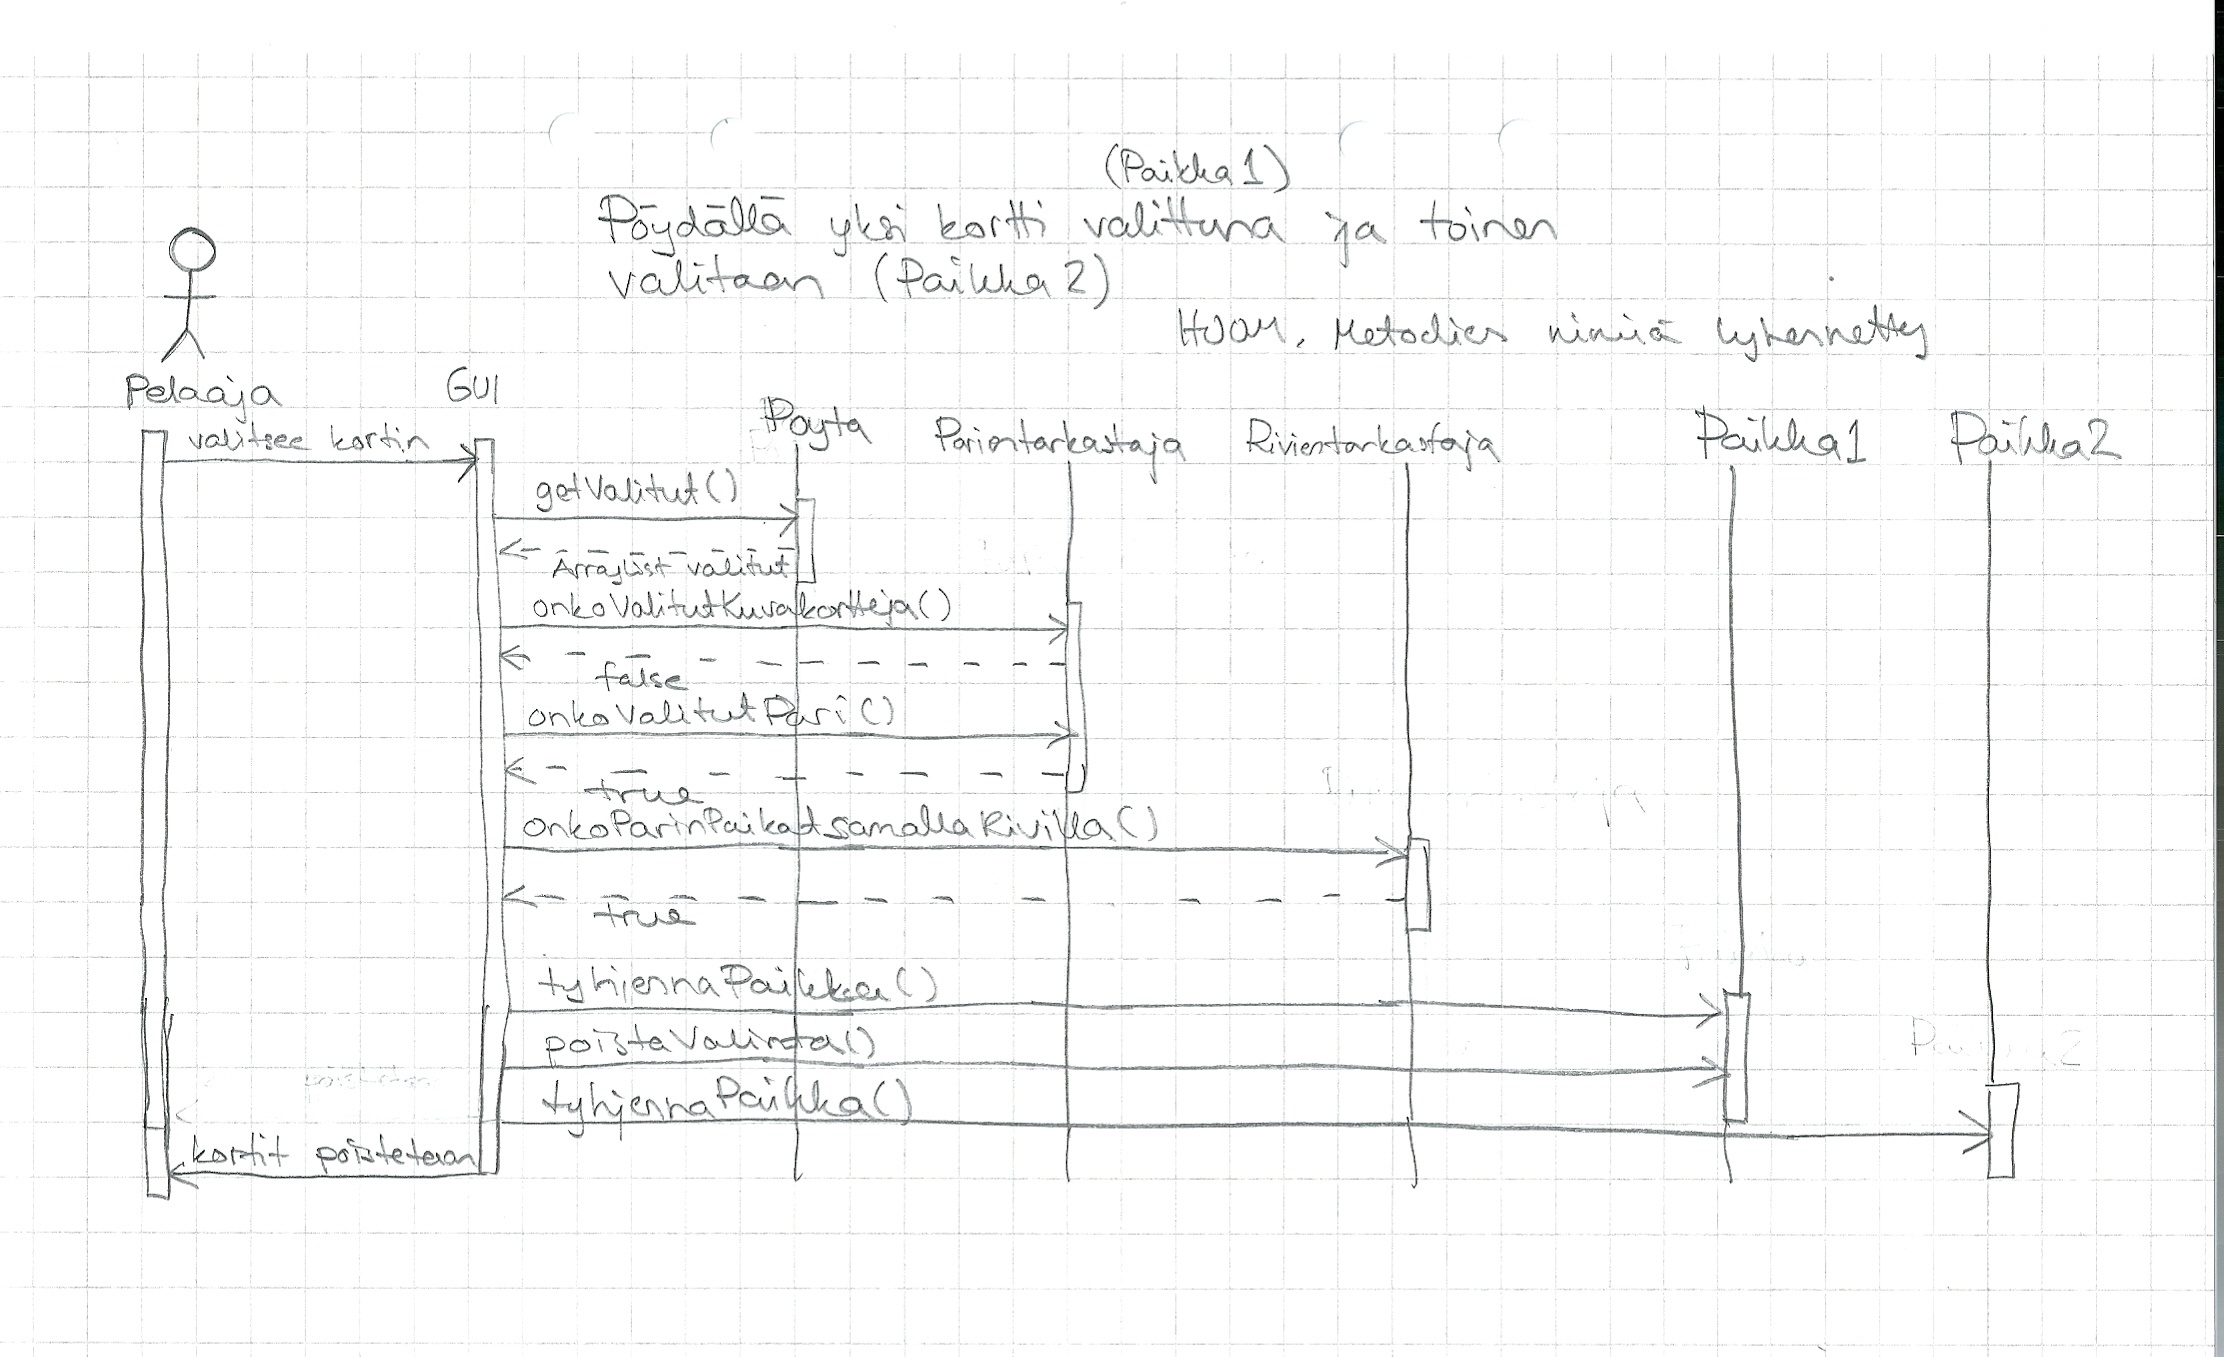 (Paikka1)
Pöydällä yksi kortti valittuna ja toinen
valitaan (Paikka2)
HUOM. Metodien nimiä lyhennetty
Pelaaja
GUI
Poyta
Parientarkastaja
Rivientarkastaja
Paikka1
Paikka2
valitsee kortin
getValitut()
ArrayList valitut
onkoValitutKuvakortteja()
false
onkoValitutPari()
true
onkoParinPaikatSamallaRivilla()
true
tyhjennaPaikka()
poistaValinta()
tyhjennaPaikka()
kortit poistetaan